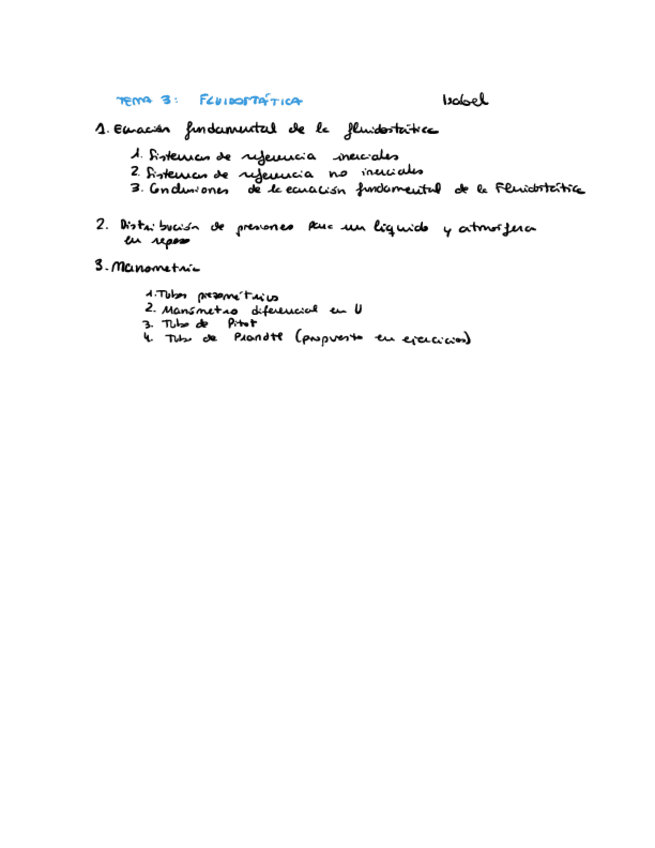 TEMA 3: FLUIDOSTÁTICA Isabel
1. Ecuación fundamental de la fluidostática
1. Sistemas de referencia inerciales
2. Sistemas de referencia no inerciales
3. Conclusiones de la ecuación fundamental de la Fluidostática
2. Distribución de presiones para un líquido y atmósfera
en reposo
3. Manometría
1. Tubos piezométricos
2. Manómetro diferencial en U
3. Tubo de Pitot
4. Tubo de Prandtl (propuesto en ejercicios)